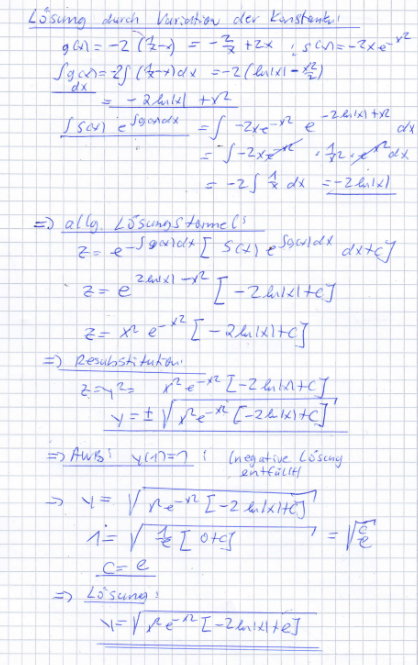 Lösung durch Variation der Konstanten:
g(x) = -2 (1/x - x) = -2/x + 2x ; s(x) = -2xe^{-x²}
∫g(x)dx = -2∫(1/x - x)dx = -2(ln|x| - x²/2)
= -2ln|x| + x²
∫s(x) e^{∫g(x)dx}dx = ∫ -2xe^{-x²} e^{-2ln|x|+x²} dx
= ∫ -2xe^{-x²} · 1/x² · e^{x²} dx
= -2∫ 1/x dx = -2ln|x|
=> allg. Lösungsformel:
z = e^{-∫g(x)dx} [ s(x) e^{∫g(x)dx} dx+c]
z = e^{2ln|x|-x²} [-2ln|x|+c]
z = x² e^{-x²} [-2ln|x|+c]
=> Resubstitution:
z=y²= x²e^{-x²} [-2ln|x|+c]
y = ± √(x²e^{-x²} [-2ln|x|+c])
=> AWB: y(1)=1 : (negative Lösung
entfällt)
=> y = √(x²e^{-x²} [-2ln|x|+c])
1 = √(1/e [0+c]) = √(c/e)
c = e
=> Lösung:
y = √(x²e^{-x²} [-2ln|x|+e])